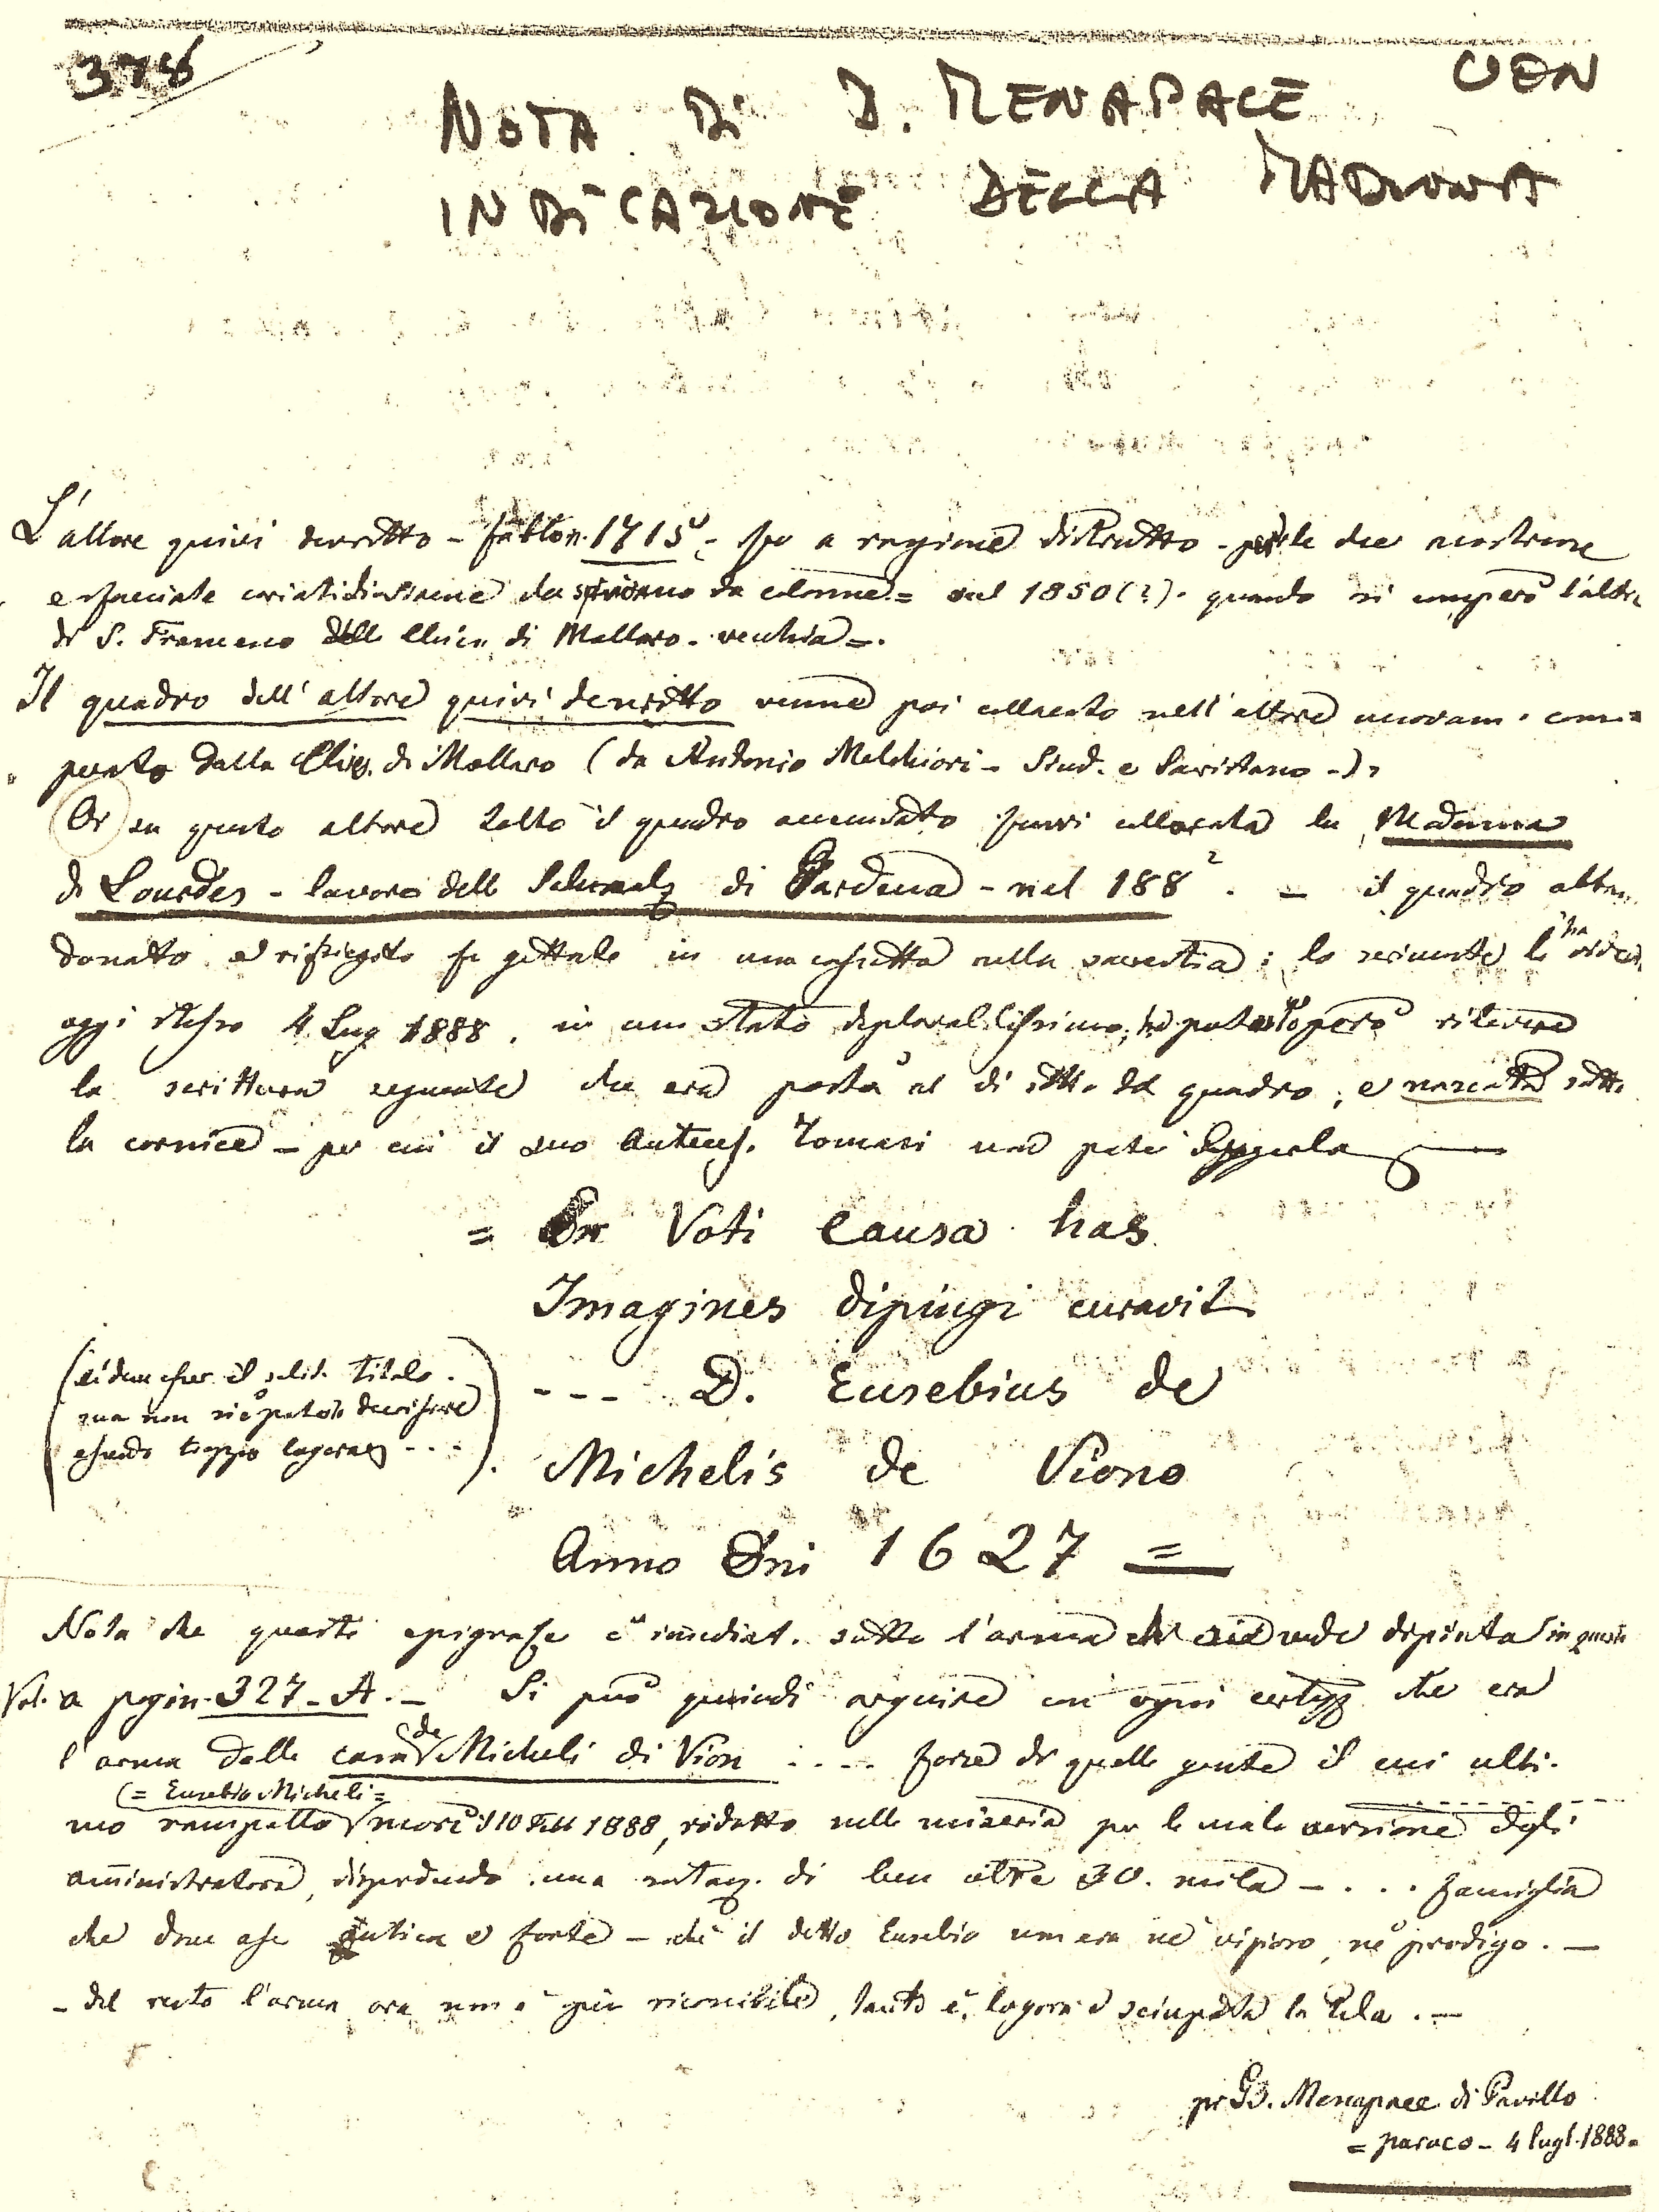 378
NOTA DI D. MENAPACE CON
INDICAZIONE DELLA MADONNA
L'altare quivi descritto - 1715 - fu a ragione distrutto - le due nostrane
e da colonne = nel 1850 (?). quando si comperò l'altre
di S. Francesco Chiesa di Mollaro - vecchia =.
Il quadro dell'altare quivi descritto venne poi collocato nell'altare nuovam. com=
perato dalla Chies. di Mollaro (da Antonio Melchiori - Sind. e Sacristano -).
Or su questo altare tolto il quadro accennato furvi collocata la Madonna
di Lourdes - lavoro dello Schmalz di Gardena - nel 1882. - il quadro abban
donato e ripiegato fu gettato in una cassetta nella sacrestia: lo scrivente lo ha
oggi stesso 4 Lug 1888. in uno stato deplorabilissimo, ha potuto però rilevare
la scrittura seguente che era posta al di sotto del quadro, e nascosta sotto
la cornice - per cui il suo Antecess. Tomasi non poté leggerla
= Ex Voti causa has
Imagines dipingi curavit
(si deve esser il solito titolo.
ma non si è potuto decifrare
essendo troppo lagora ...).
--- D. Eusebius de
Michelis de Viono
Anno Dni 1627 =
Nota che questa epigrafe è immediat. sotto l'arma che si vede dipinta in questo
Vol. a pagin. 327-A. - Si può quindi arguire con ogni certezz che era
l'arma della casa de Micheli di Vion .... forse di quella gente il cui ulti-
(= Eusebio Micheli =
mo rampollo morì il 10 Febb 1888, ridotto nella miseria per la mala versazione degli
amministratori, disperdendo una sostanz. di ben oltre 30. mila - ... famiglia
che dove esse antica e forte - chè il detto Eusebio non era nè vizioso, nè prodigo. -
- del resto l'arma ora non è più riconoscibile, tanto è lagora e sciupata la tela. -
pr GB. Menapace di Tavillo
= paroco - 4 lugl. 1888 =